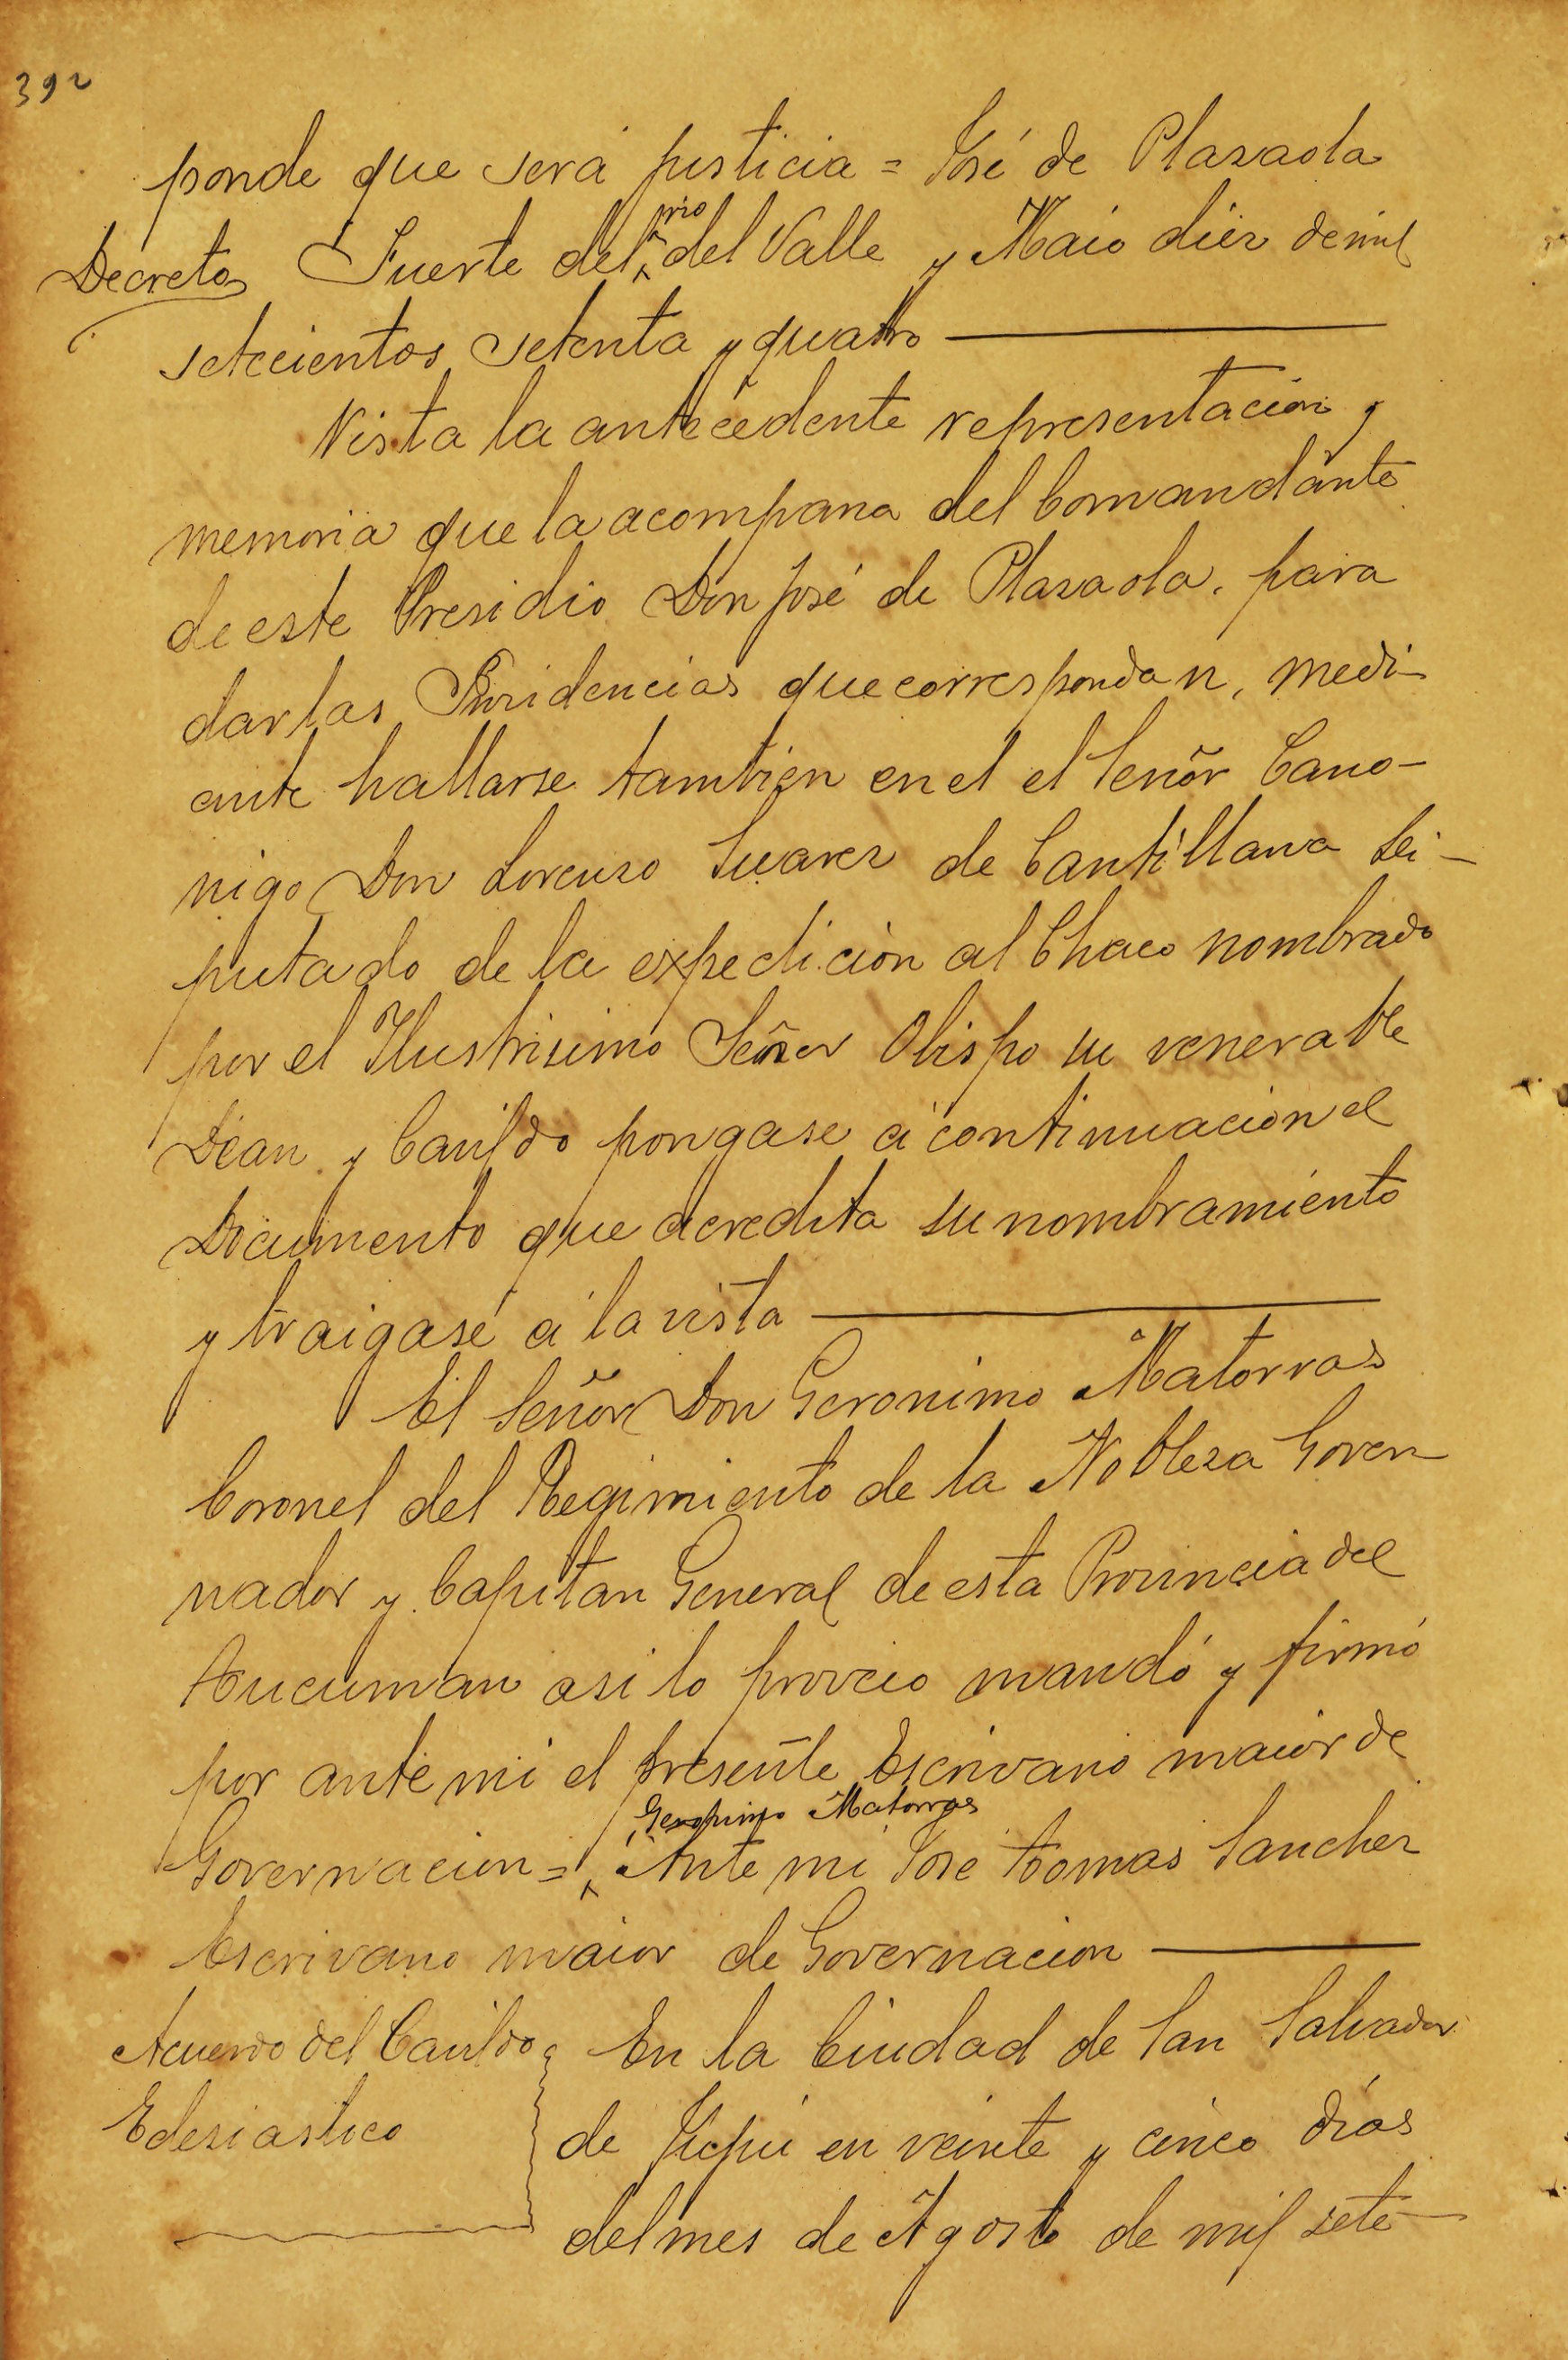 392
ponde que será justicia = José de Plazaola
Decreto Fuerte del rio del Valle y Maio diez de mil
setecientos setenta y quatro
Vista la antecedente representacion y
memoria que la acompana del Comandante
de este Presidio Don José de Plazaola, para
dar las Providencias que correspondan, medi-
ante hallarse tambien en el el Señor Cano-
nigo Don Lorenzo Suarez de Cantillana Di-
putado de la expedicion al Chaco nombrado
por el Ilustrisimo Señor Obispo su venerable
Dean y Cavildo pongase á continuacion el
Documento que acredita su nombramiento
y traigase á la vista
El Señor Don Geronimo Matorras
Coronel del Regimiento de la Nobleza Gover-
nador y Capitan General de esta Provincia del
Tucuman asi lo proveio mandó y firmó
por ante mi el presente Escrivano maior de
Geronimo Matorras
Governacion = Ante mi José Tomas Sanchez
Escrivano maior de Governacion
Acuerdo del Cavildo En la Ciudad de San Salvador
Eclesiastico de Jujui en veinte y cinco dias
del mes de Agosto de mil sete-